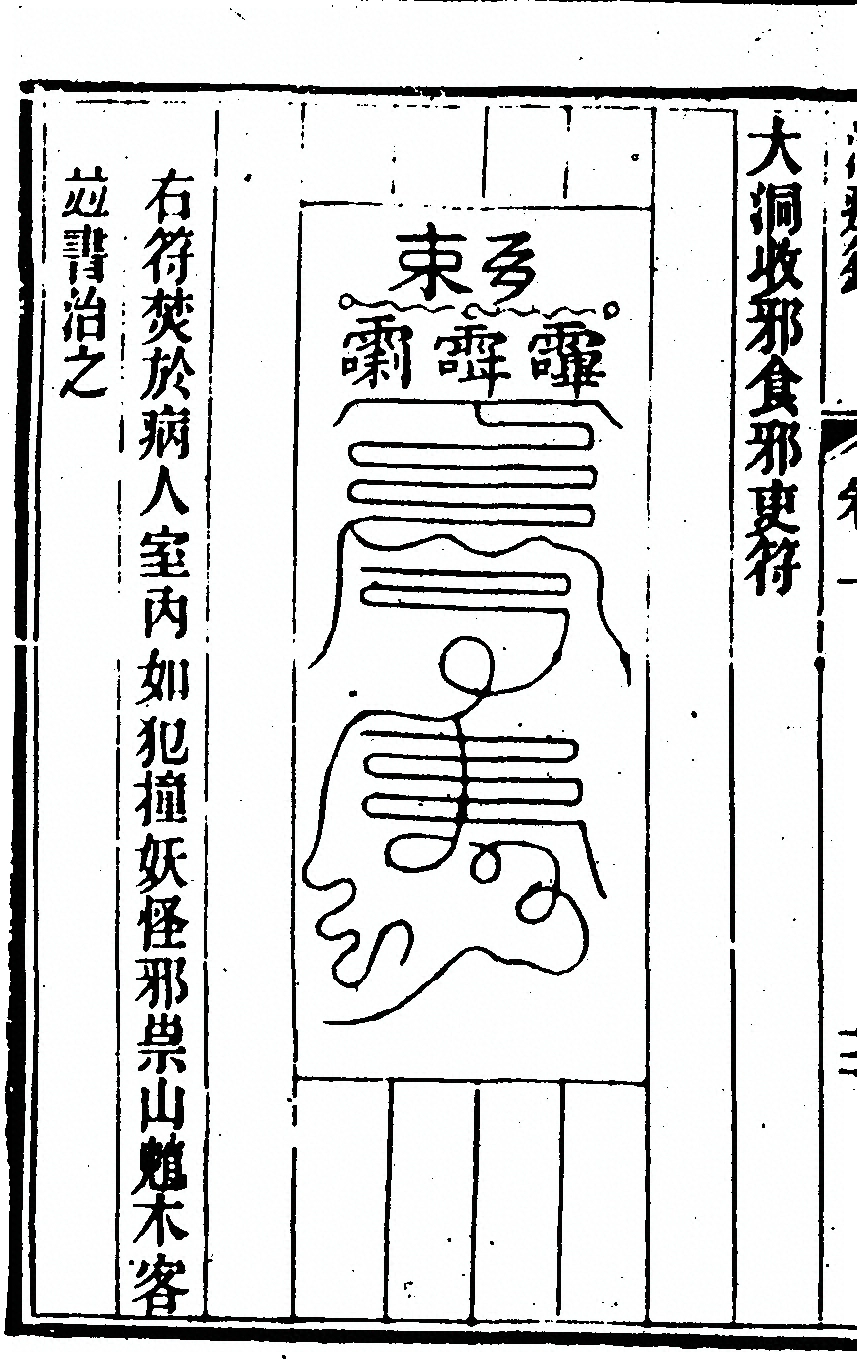 大洞收邪食邪吏符
右符焚於病人室內如犯撞妖怪邪祟山魈木客
並書治之